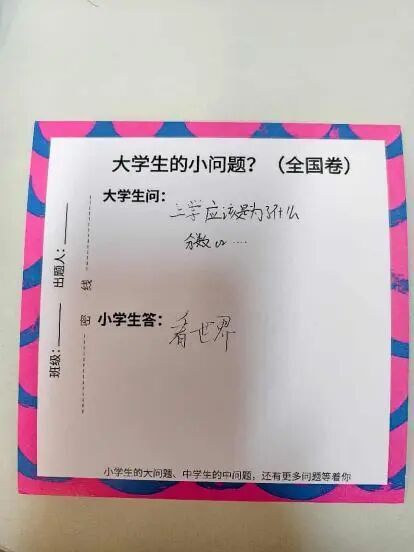 大学生的小问题？（全国卷）
大学生问：
上学应该是为了什么
分数 or ...
小学生答：
看世界
班级：____ 出题人：____
密 线
小学生的大问题、中学生的中问题，还有更多问题等着你